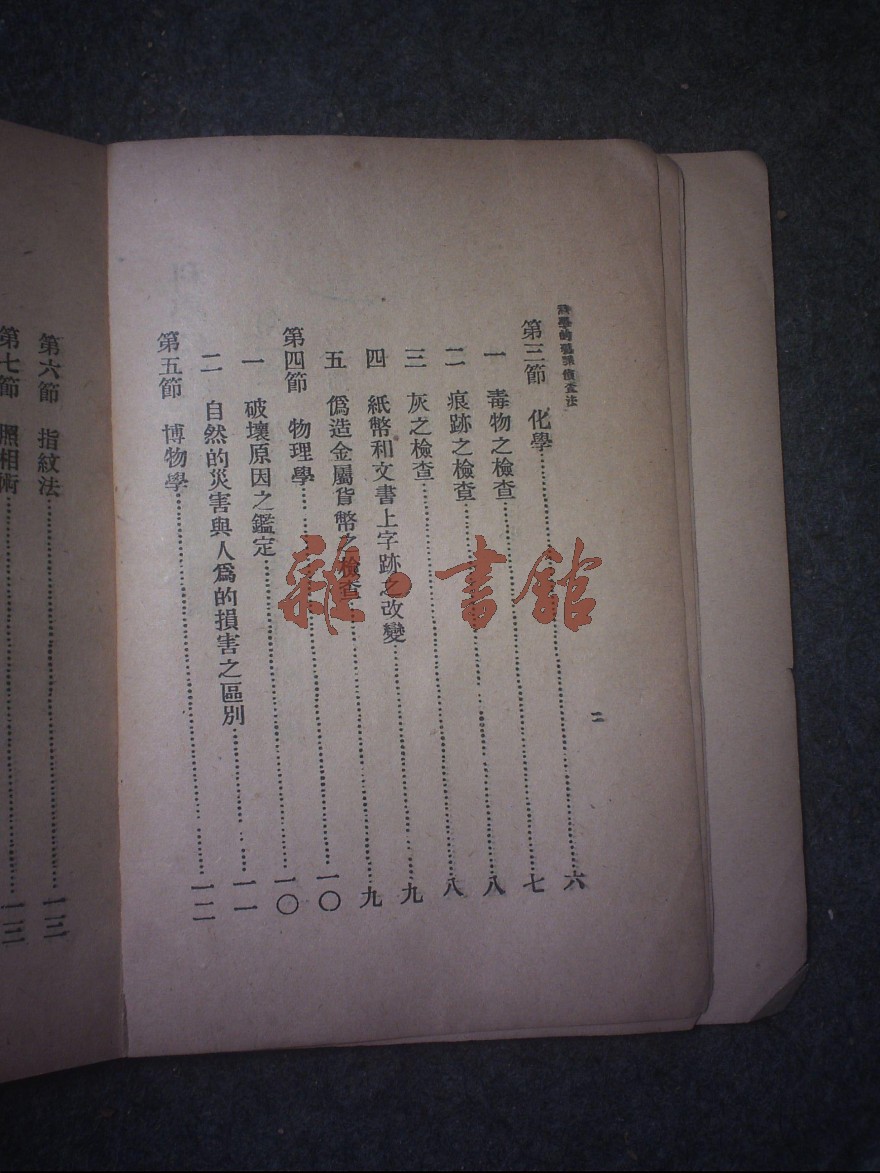 科學的偵查法
二
第三節 化學……六
一 毒物之檢查……七
二 痕跡之檢查……八
三 灰之檢查……八
四 紙幣和文書上字跡之改變……九
五 僞造金屬貨幣之檢查……九
第四節 物理學……一〇
一 破壞原因之鑑定……一〇
二 自然的災害與人爲的損害之區別……一一
第五節 博物學……一二
第六節 指紋法……一三
第七節 照相術……一三
雜·書館